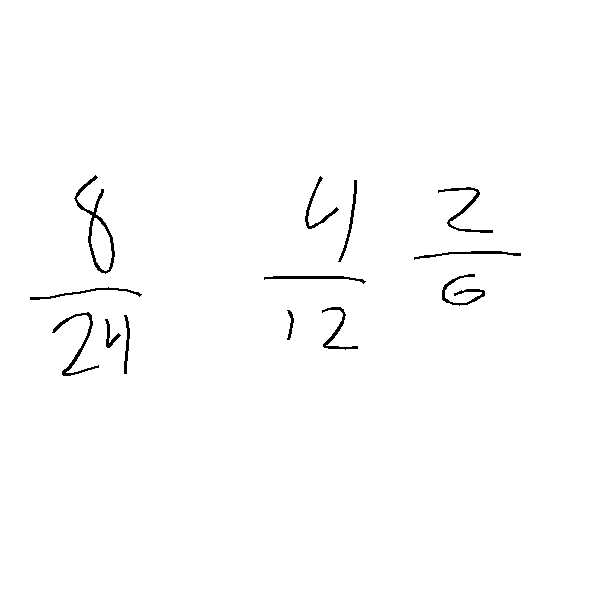 8/24 4/12 2/6